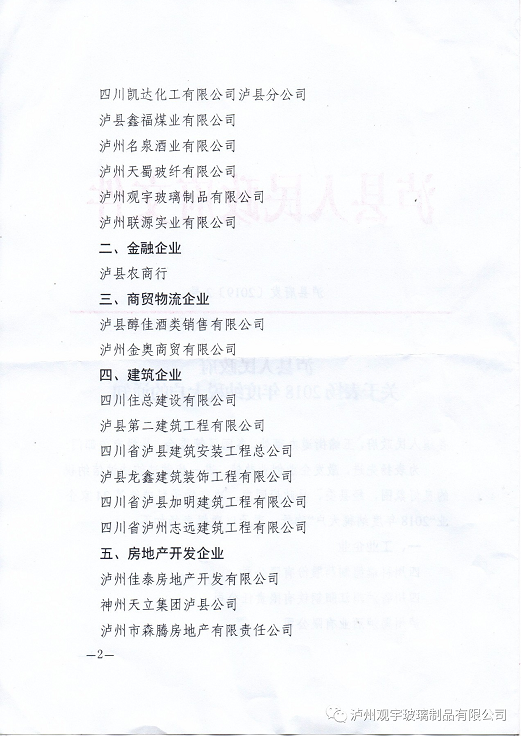 四川凯达化工有限公司泸县分公司
泸县鑫福煤业有限公司
泸州名泉酒业有限公司
泸州天蜀玻纤有限公司
泸州观宇玻璃制品有限公司
泸州联源实业有限公司
二、金融企业
泸县农商行
三、商贸物流企业
泸县醇佳酒类销售有限公司
泸州金奥商贸有限公司
四、建筑企业
四川住总建设有限公司
泸县第二建筑工程有限公司
四川省泸县建筑安装工程总公司
泸县龙鑫建筑装饰工程有限公司
四川省泸县加明建筑工程有限公司
四川省泸州志远建筑工程有限公司
五、房地产开发企业
泸州佳泰房地产开发有限公司
神州天立集团泸县公司
泸州市森腾房地产有限责任公司
—2—
泸州观宇玻璃制品有限公司